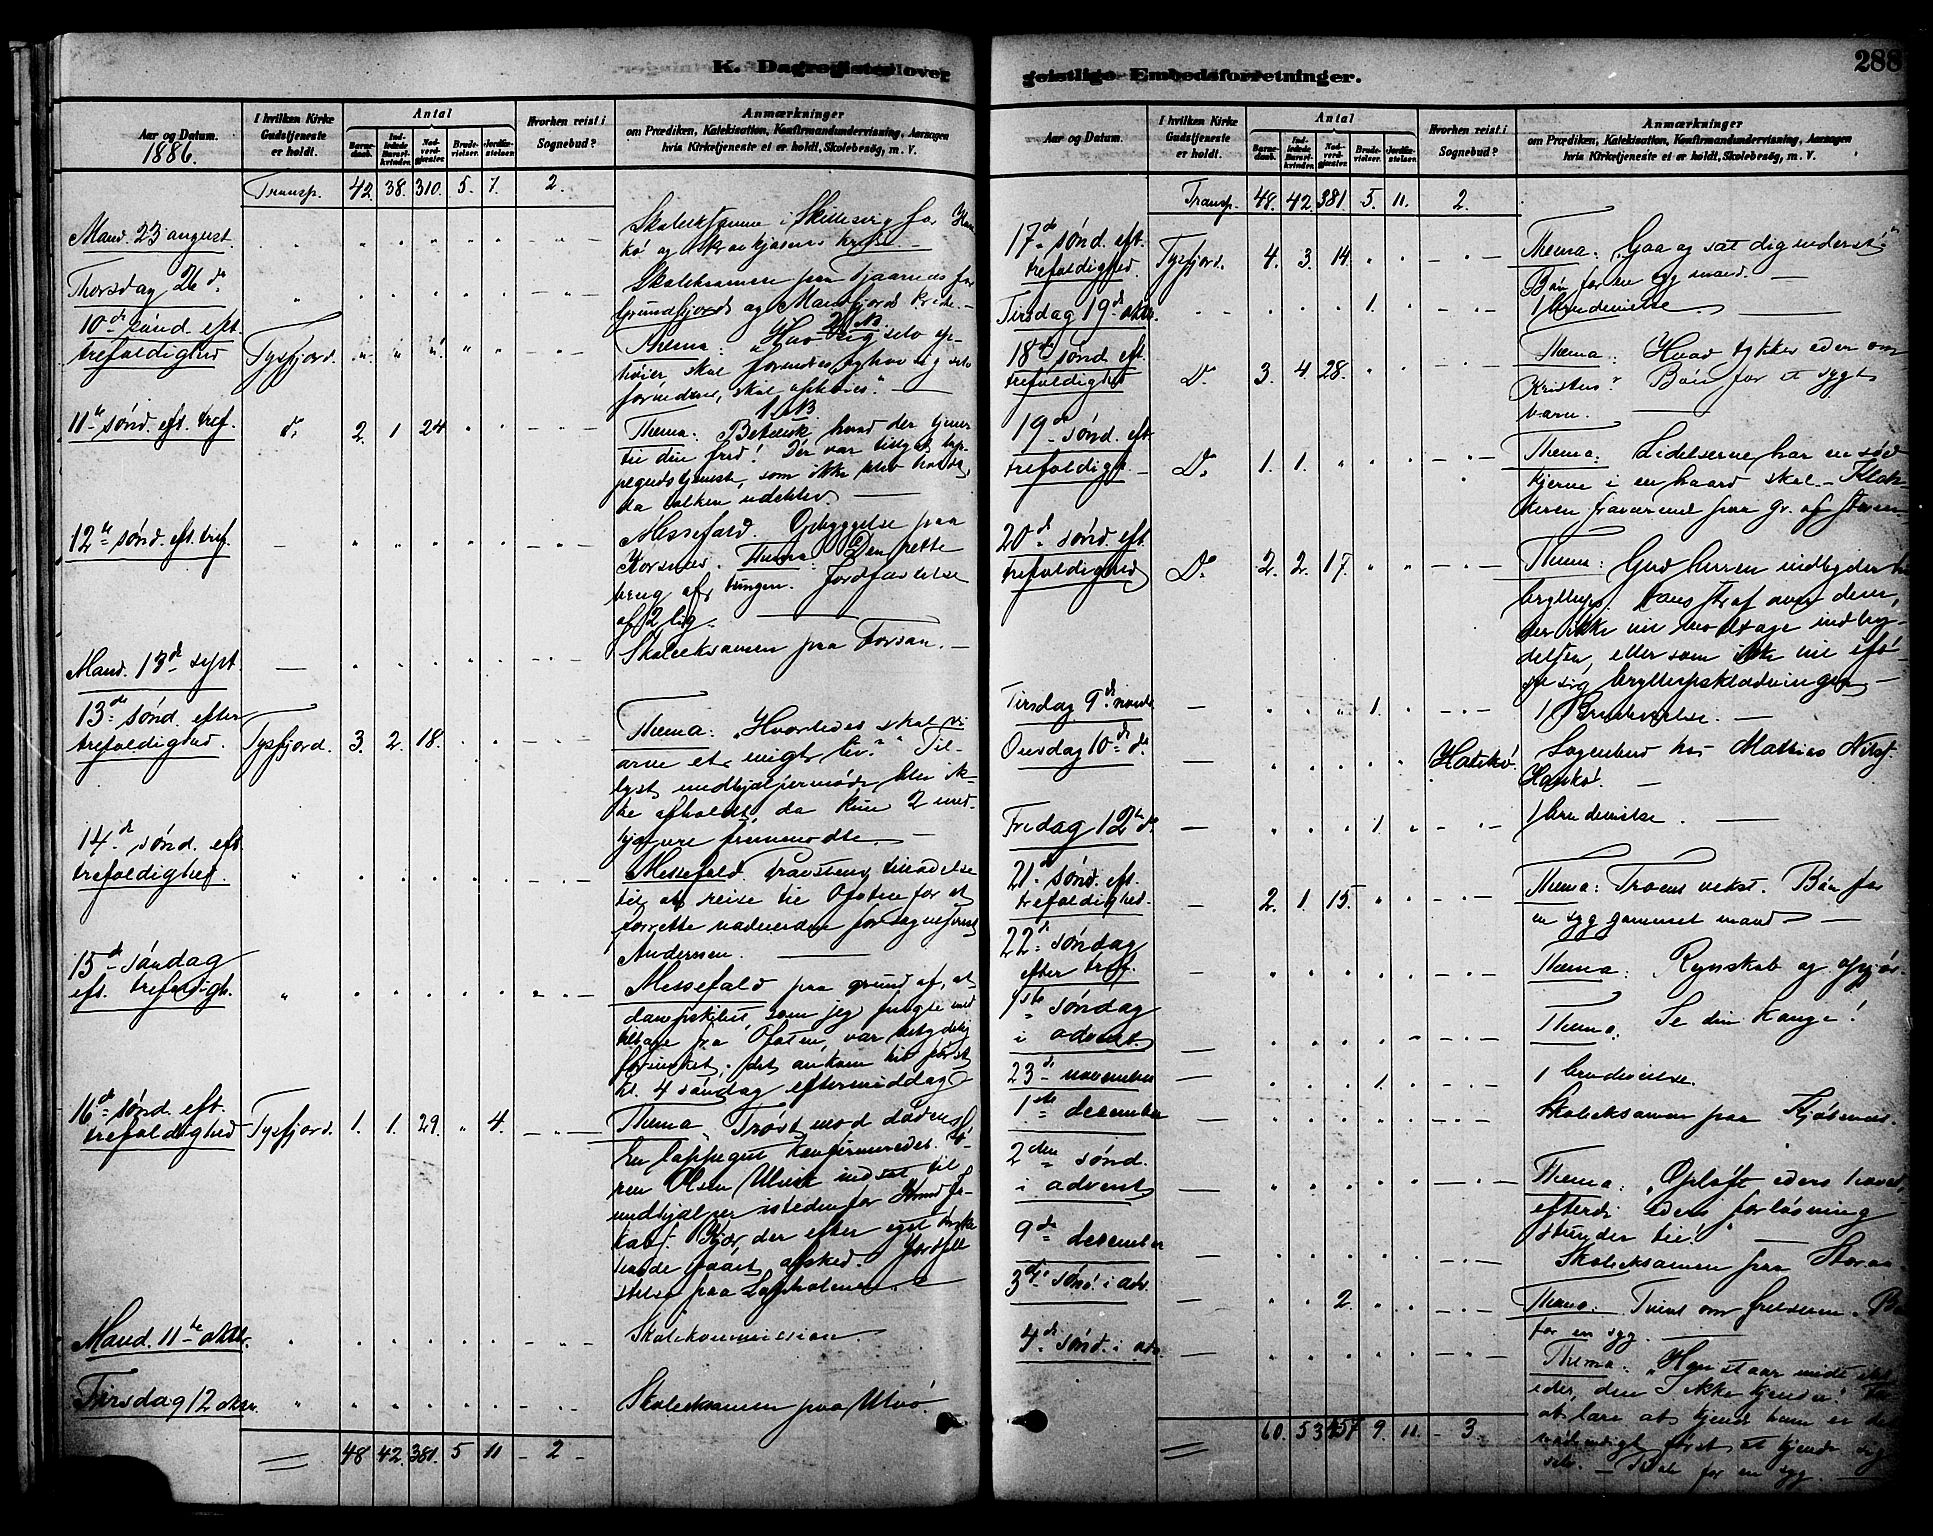 K. Dagregister over
Aar og Datum.
1886.
I hvilken Kirke
Gudstjeneste
er holdt.
Antal
Barne-
daab.
Ind-
ledede
Barsel-
kvinder.
Nad-
verd-
gjæster.
Brude-
vielser.
Jordfæ-
stelser.
Hvorhen reist i
Sognebud?
Anmærkninger
om Prædiken, Katekisation, Konfirmandundervisning, Aarsagen
hvis Kirketjeneste ei er holdt, Skolebesög, m. V.
Transp. 42. 38. 310. 5. 7. 2.
Mand. 23 august
Skoleksamen i
kö og kreds
Thorsdag 26 d.
Skoleksamen paa Tjaarnes for
Grundfjord og Mandfjord kreds.
10de sönd. eft.
trefoldighed Tysfjord.
Thema: "Hvo sig selv op-
höier skal fornedres, og hvo sig selv
fornedrer, skal ophöies".
11te sönd. eft. tref. d. 2. 1 24
Thema: Betænk hvad der tjener
til din fred! Der var tillyst
som ikke blev holdt,
da tolken udeblev
12te sönd. eft. tref.
Messefald. Opbyggelse paa
Korsnes. Thema: Den rette
brug af tungen. Jordfæstelse
af 2 lig.
Mand. 13de sept.
Skoleksamen paa Forsan.
13de sönd. efter
trefoldighed. Tysfjord. 3. 2. 18.
Thema: "Hvorledes skal vi
arve et evigt liv?" Til-
lyst medhjælpermöde blev ik-
ke afholdt, da kun 2 med-
hjælpere fremmödte.
14de sönd. eft.
trefoldighed.
Messefald. tilladelse
til at reise til Ofoten for at
forrette nadverden for sogneprest
Andersen.
15de söndag
eft. trefoldigh.
Messefald paa grund af, at
dampskibet, som jeg fulgte med
tilbage fra Ofoten, var betydelig
forsinket; det ankom hid först
kl. 4 söndag eftermiddag
16de sönd. eft.
trefoldighed Tysfjord. 1. 1. 29. 4.
Thema: Tröst mod döden
En lappegut konfirmeredes. Sö-
ren Olsen Ulvik indsat til
medhjælper istedenfor
der efter eget önske
havde faaet afsked. Jordfæ-
stelse paa
Mand. 11te oktbr.
Skolekommission.
Tirsdag 12 oktbr.
Skoleksamen paa Ulvö.
48 42. 381. 5 11 2
geistlige Embedsforretninger.
288
Aar og Datum.
I hvilken Kirke
Gudstjeneste
er holdt.
Antal
Barne-
daab.
Ind-
ledede
Barsel-
kvinder.
Nad-
verd-
gjæster.
Brude-
vielser.
Jordfæ-
stelser.
Hvorhen reist i
Sognebud?
Anmærkninger
om Prædiken, Katekisation, Konfirmandundervisning, Aarsagen
hvis Kirketjeneste ei er holdt, Skolebesög, m. V.
Transp. 48. 42. 381. 5. 11. 2.
17de sönd. eft.
trefoldighed. Tysfjord. 4. 3. 14.
Thema: "Gaa og sæt dig nederst!"
Bön for en syg mand.
Tirsdag 19de oktbr. 1.
1 brudevielse
18de sönd. eft.
trefoldighed D. 3. 4. 28.
Thema: Hvad tykkes eder om
Kristus? Bön for et sygt
barn.
19de sönd. eft.
trefoldigh. D. 1. 1.
Thema: Lidelserne har en söd
kjerne i en haard skal. Klok-
keren fraværende paa gr. af storm
20de sönd. eft.
trefoldighed D. 2. 2. 17.
Thema: Gud Herren indbyder til
bryllup. Hans straf over dem,
der ikke vil modtage indby-
delsen, eller som ikke vil iför-
e sig bryllupsklædningen
Tirsdag 9de novbr. 1.
1 Brudevielse.
Onsdag 10de d. Halskö.
Sognebud hos Mathias Nilsf.
Fredag 12te d. 1.
1 brudevielse.
21de sönd. eft.
trefoldighed. 2. 1. 15.
Thema: Troens vekst. Bön for
en syg gammel mand
22de söndag
efter tref.
Thema: Regnskab og opgjör
1ste söndag
i advent
Thema: Se din konge!
23de november 1.
1 brudevielse.
1ste desember
Skoleksamen paa Kjösnes.
2den sönd.
i advent
Thema: "Oplöft eders hoved,
efterdi eders forlösning
stunder til!"
9de desember
Skoleksamen paa Storaa
3die sönd. i adv. 2.
Thema: Tvivl om frelseren.
for en syg.
4de sönd. i adv.
Thema: "Han staar midt iblt.
eder, den I ikke kjender!"
at lære at kjende ham er det
nödvendigt först at kjende sig
selv. for en syg.
60. 53. 457. 9. 11. 3.